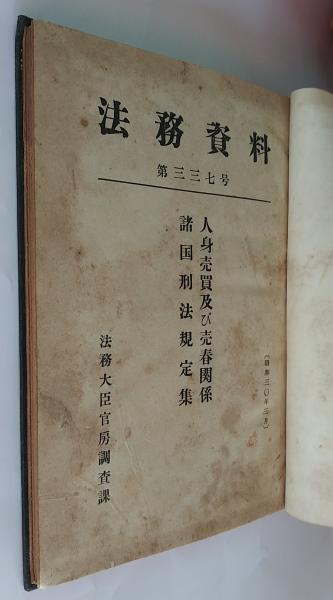 法務資料
第三三七号
(昭和三〇年三月)
人身売買及び売春関係
諸国刑法規定集
法務大臣官房調査課